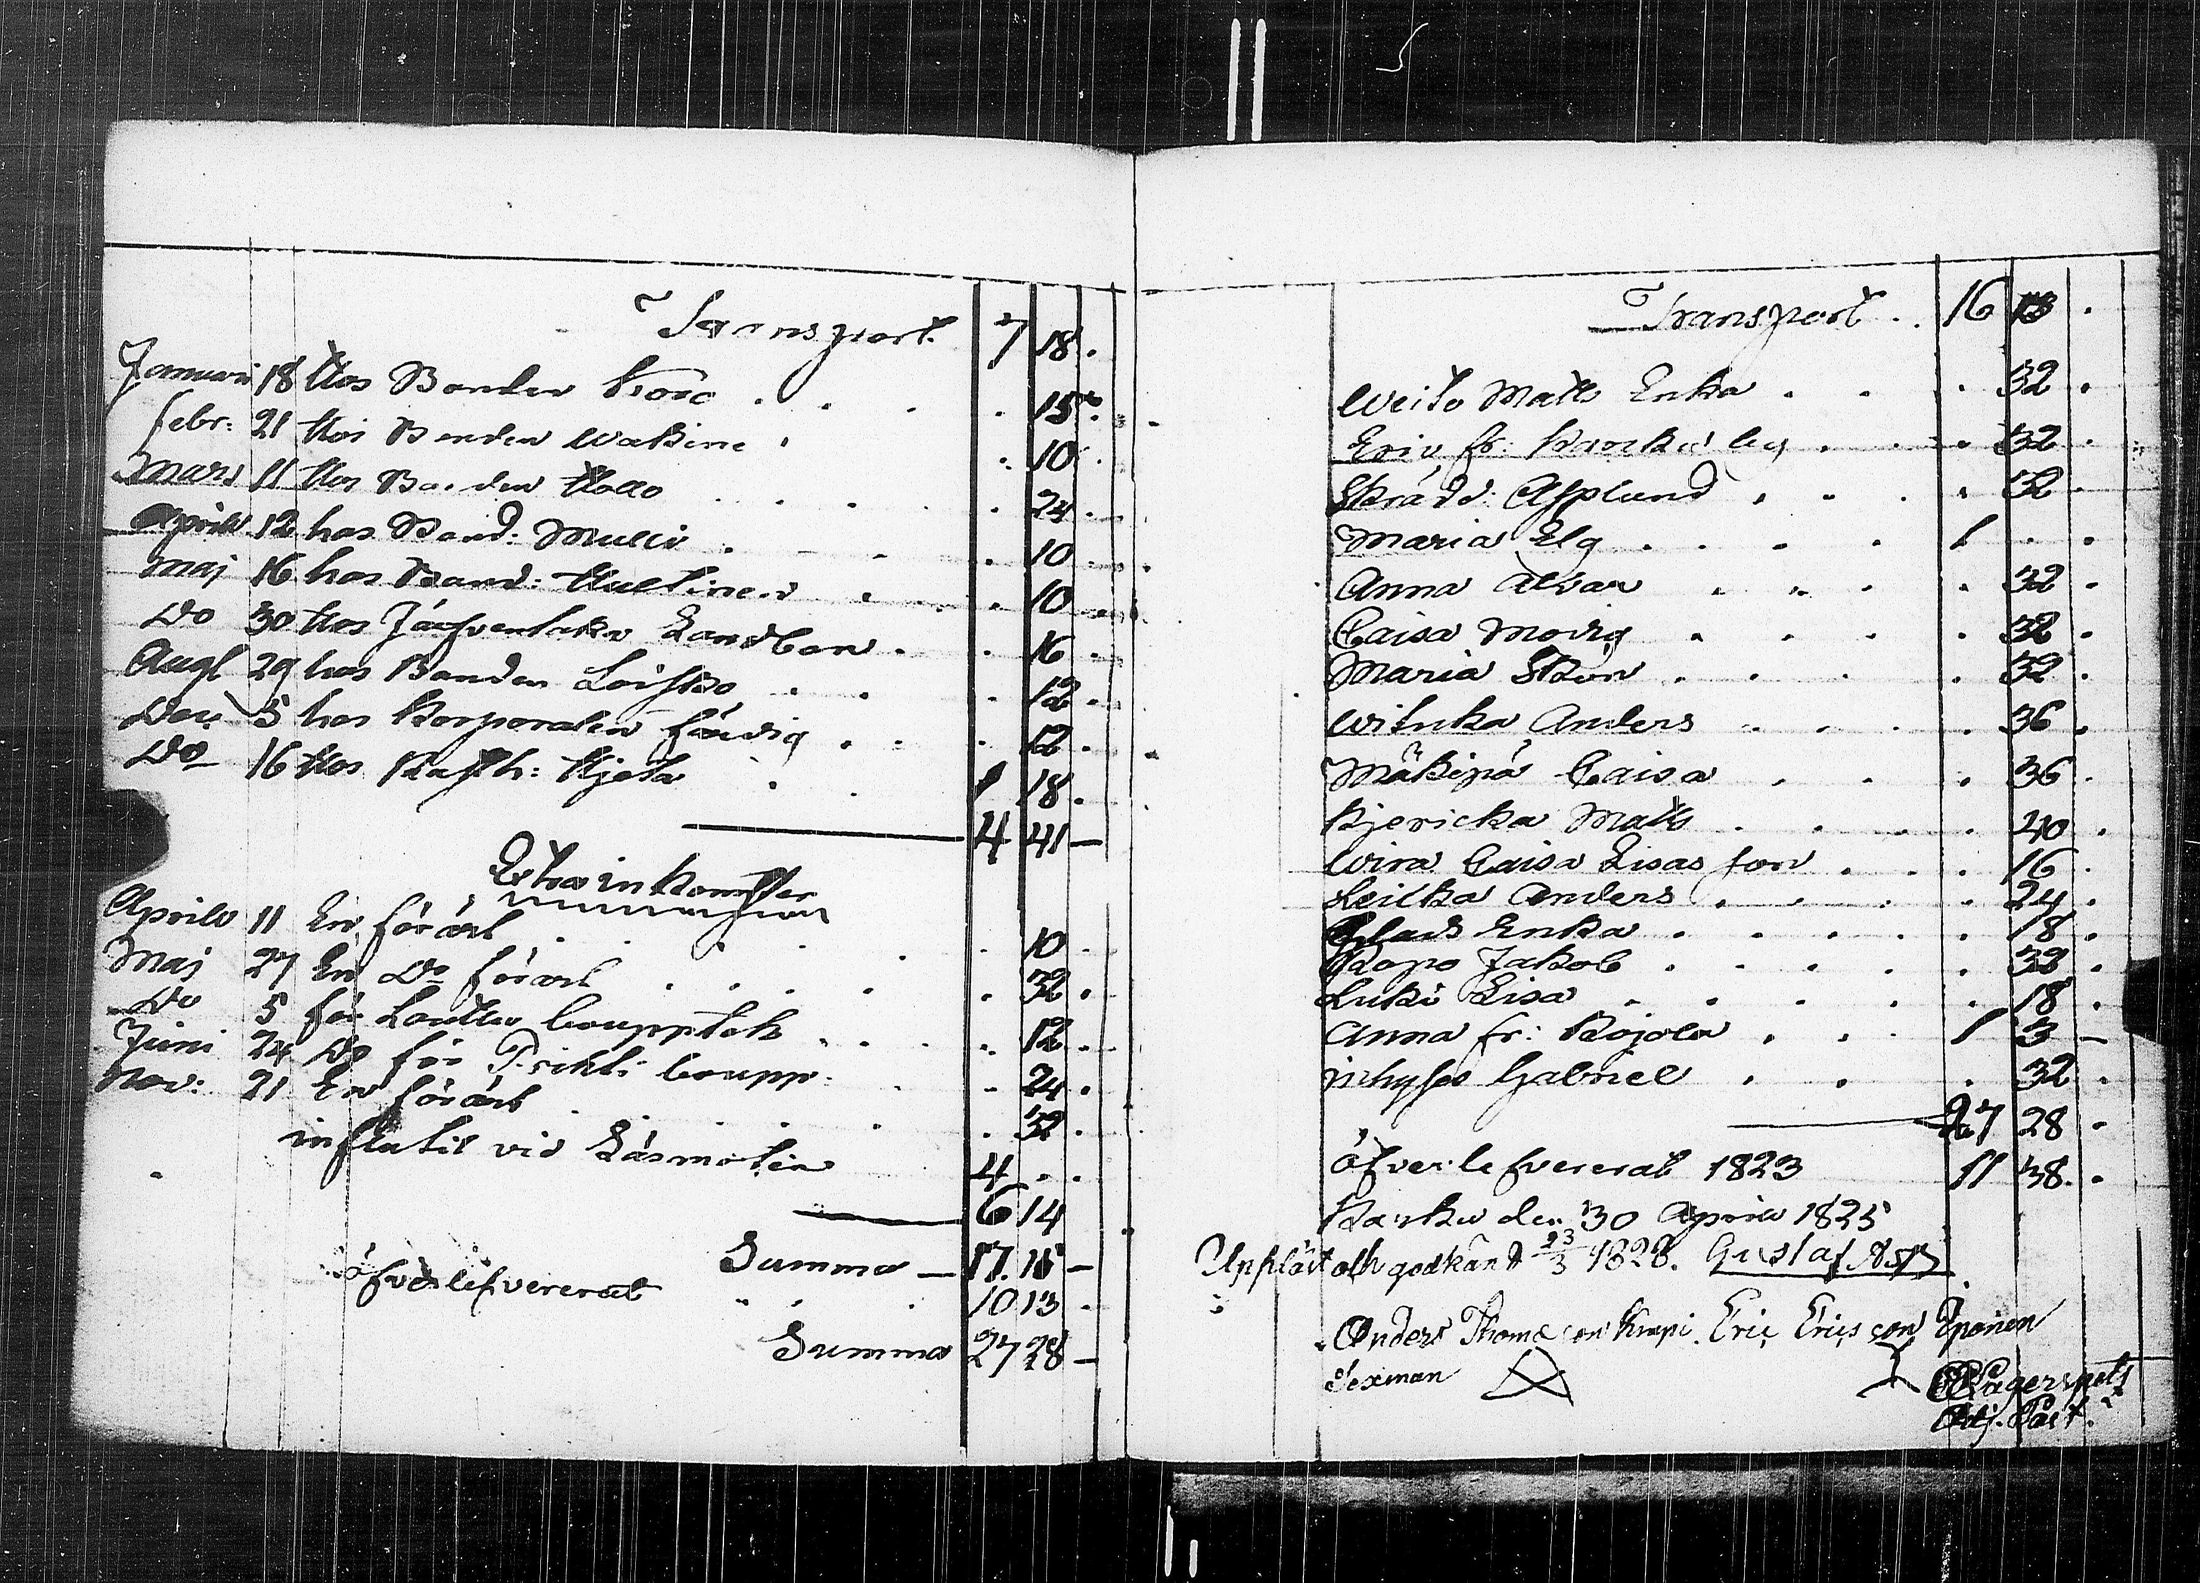 Transport 7 18 .
Januari 18 Hos Bonden Kroro . . . . 15 .
febr: 21 Hos Bonden Wakine . . 10 .
Mars 11 Hos Bonden Hollo . . . . 24 .
Aprill 12 hos Bond: Mulli . . . . 10 .
Maj 16 hos Bond: Hultinen . . . 10 .
Do 30 Hos Jäafvenlaka Landbon . . 16 .
Augl 29 hos Bonden Loisko . . . 12 .
Dec: 5 hos Korporalen färdig . . . 12 .
Do 16 Hos Rusth: Hjeta . . 1 18 .
4 41 –
Extra inkomster
Aprill 11 En förärt . . . . . 10 .
Maj 27 En Do förärt . . . . . 32 .
Do 5 för bouppteck . . . . 12 .
Juni 24 Do för boupp: . . 24 .
Nov: 21 En förärt . . . . . 32 .
influtit vid Läsmöten 4 . .
6 14
Summa – 17. 15 –
öfverlefvererat . . . 10 13 .
Summa 27 28 –
Transport . . 16 13 .
Weito Matts Enka . . . 32 .
Eric fr: Karcku by . . . 32 .
Skrädd: Asplund . . . . 32 .
Maria Elg . . . . 1 . .
Anna Alvar . . . . 32 .
Caisa Modig . . . . 32 .
Maria Skön . . . . 32 .
Wituka Anders . . . . 36 .
Mäkipä Caisa . . . 36 .
Kjericka Matts . . . . 40 .
Wira Caisa Lisas son . . . 16 .
Leicka Anders . . . . 24 .
Glads Enka . . . . . 18 .
Jakob . . . . . 32 .
Luki Lisa . . . . . 18 .
Anna fr: Kojola . . . 1 3 –
Gabriel . . . 32 .
27 28 .
öfverlefvererat 1823 11 38 . .
Karku den 30 Aprill 1825
Uppläst och godkändt 23/3 1828. Gustaf Asp
Anders Thomæson Knapi. Eric Ericsson Iponen
Sexman
Lagerspetz
Adj. Past.